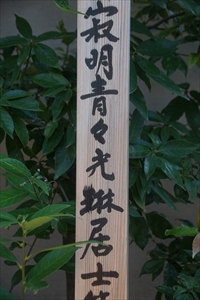 寂明青々光琳居士